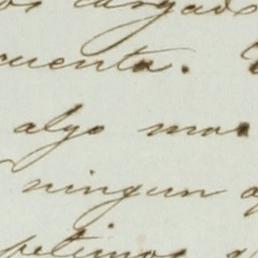 os cargado
cuenta.
algo mas
ningun
petimos